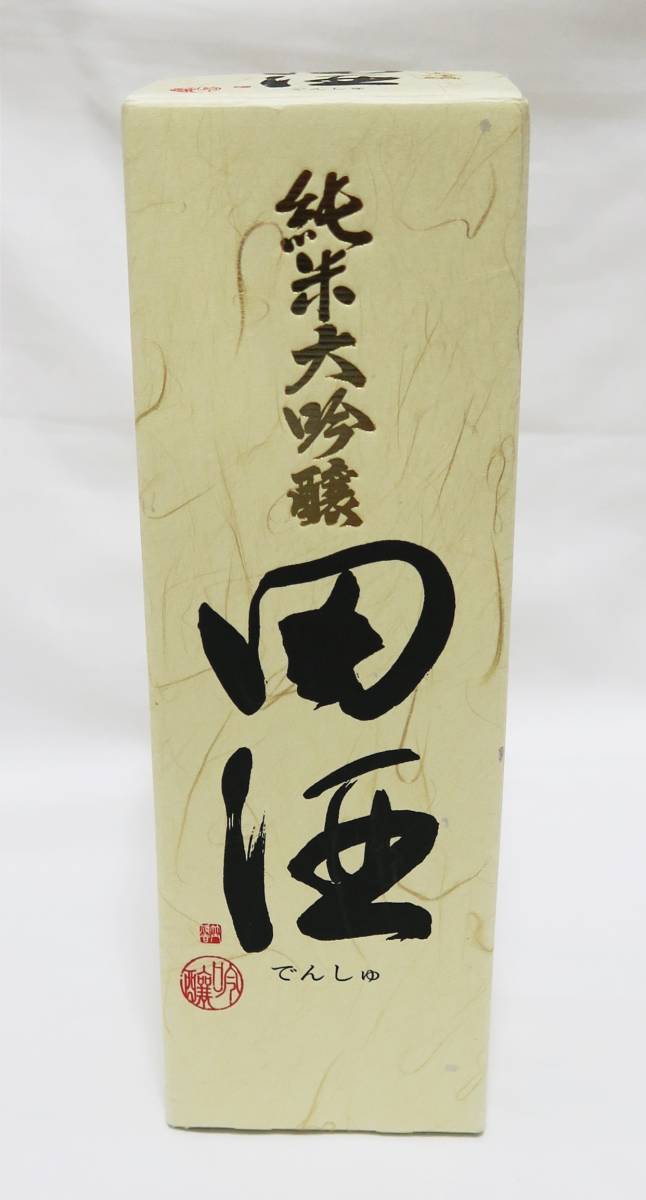 純米大吟醸
田酒
でんしゅ
吟醸